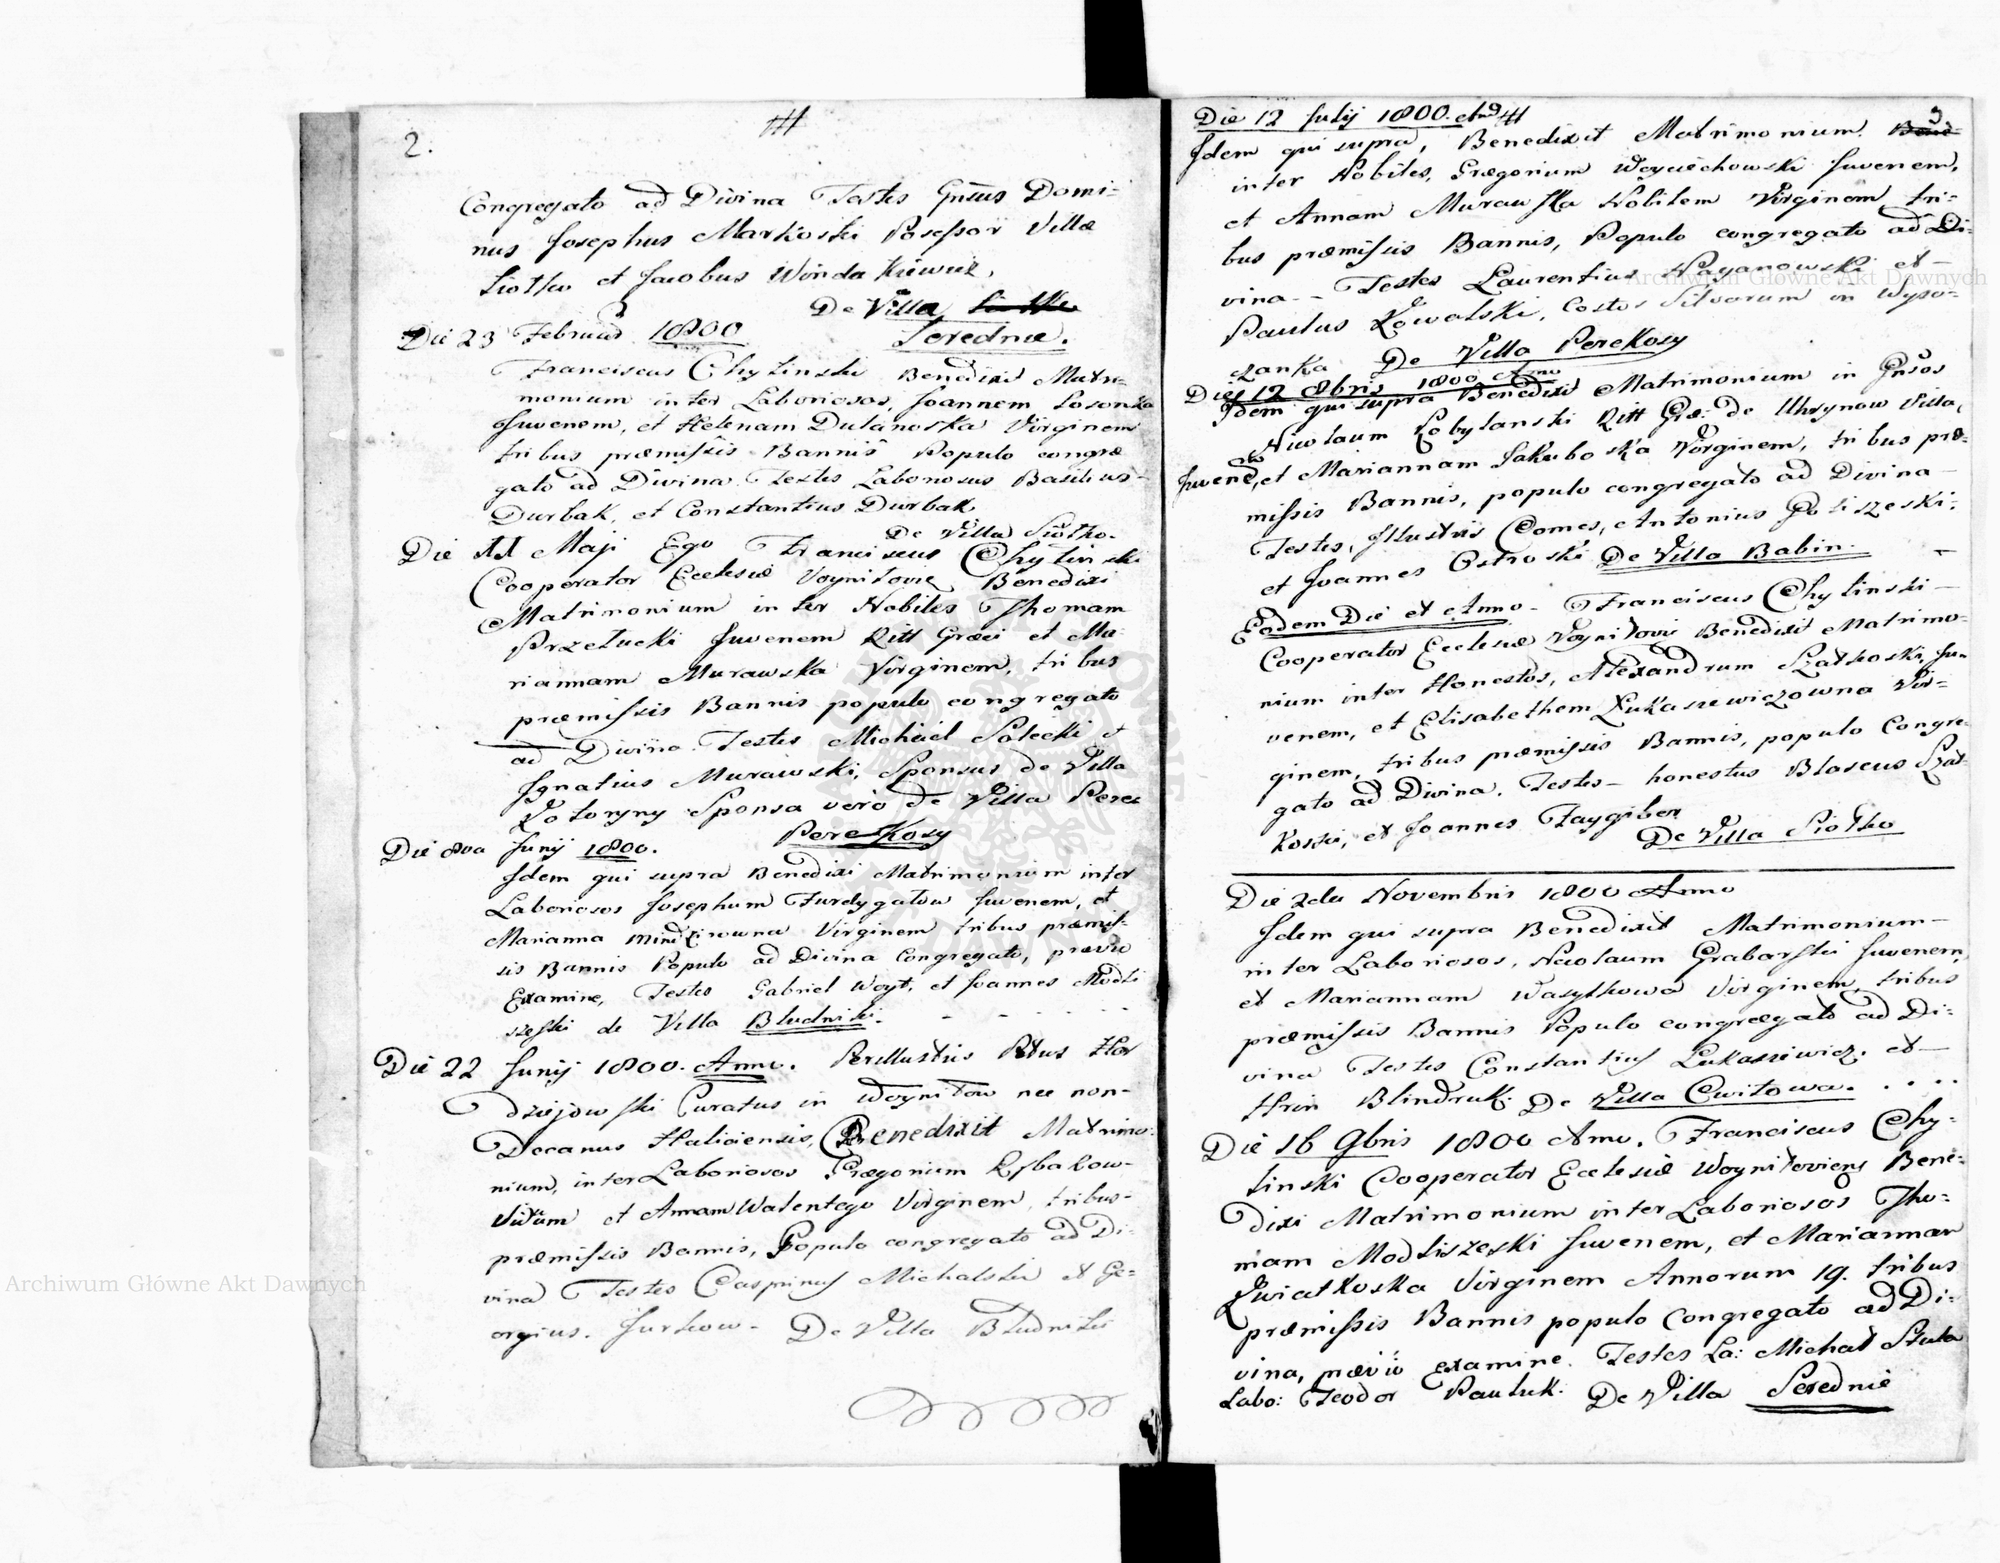 2.
Congregato ad Divina Testes Gnsus Domi-
nus Josephus Markoski Posessor Villæ
Siotko et Jacobus Wonda Kiewicz,
De Villa
Die 23 Februar 1800 Serednie.
Franciscus Chylinski Benedixi Matri-
monium inter Laboriosos, Joannem Sosonka
Juvenem, et Helenam Dulanoska Virginem
tribus præmissis Bannis Populo congre
gato ad Divina Testes Laboriosus Basilius
Durbak, et Constantius Durbak
De Villa Siotko.
Die XX Maji Ego Franciscus Chylinski
Cooperator Ecclesiæ Voyniloviç Benedixi
Matrimonium inter Nobiles Thomam
Przelucki Juvenem Ritt Græci et Ma-
riannam Murawska Virginem, tribus
præmissis Bannis populo congregato
ad Divina. Testes Michael Solecki et
Ignatius Murawski, Sponsus de Villa
Sponsa vero de Villa Pere
Die 8va Junij 1800. PereKosy
Idem qui supra Benedixi Matrimonium inter
Laboriosos Josephum Furdygatow Juvenem, et
Marianna Virginem tribus præmis-
sis Bannis Populo ad Divina Congregato, prævio
Examine, Testes Gabriel Woyt, et Joannes Modli
szeski de Villa Bludniki.
Die 22 Junij 1800. Anno. Perillustris Rdus Hor
dziejowski Curatus in Woynilow nec non-
Decanus Haliciensis, Benedixit Matrimo-
nium, inter Laboriosos Gregorium Rybakow-
Viduum et Annam Walentego Virginem, tribus-
præmissis Bannis, Populo congregato ad Di-
vina Testes Casprinus Michalski et Ge-
orgius. Jurkow- De Villa Bludniki
3
Die 12 Julij 1800. Ao
Idem qui supra, Benedixit Matrimonium.
inter Nobiles, Gregorium Woyciechowski Juvenem,
et Annam Murawska Nobilem Virginem, tri-
bus præmissis Bannis, Populo congregato ad Di-
vina - Testes Laurentius Paganowski et-
Paulus Kowalski, Costos Silvarum in Wyso-
czanka De Villa PereKosy
Die 12 8bris 1800 Anno
Idem qui supra Benedixi Matrimonium in Gnsos
Nicolaum Kobylanski Ritt Græ: de Uhrynow Villa,
Juvene, et Mariannam Jakuboska Virginem, tribus præ-
missis Bannis, populo congregato ad Divina
Testes, Illustris Comes, Antonius Goliszeski,
et Joannes Ostroski De Villa Babin.
Eodem Die et Anno - Franciscus Chylinski-
Cooperator Ecclesiæ Voynilovie Benedixit Matrimo-
nium inter Honestos, Alexandrum Szatkoski, Ju-
venem, et Elisabethem Lukasiewiczowna Vir-
ginem, tribus præmissis Bannis, populo Congre-
gato ad Divina. Testes- honestus Blaseus Szat-
koski, et Joannes Faygiber
De Villa Siotko
Die 2da Novembris 1800 Anno
Idem qui supra Benedixit Matrimonium-
inter Laboriosos, Nicolaum Grabarski Juvenem,
et Mariannam Wasylkowa Virginem, tribus
præmissis Bannis Populo congregato ad Di-
vina Testes Constantius Lukasiewicz. et-
Hrin Blindruk. De Villa Cwitowa.
Die 16 9bris 1800 Ano. Franciscus Chy-
linski Cooperator Ecclesiæ Woyniloviens Bene-
dixi Matrimonium inter Laboriosos Tho-
mam Modliszeski Juvenem, et Mariannan
Kwiatkoska Virginem Annorum 19. tribus
præmissis Bannis populo Congregato ad Di-
vina, prævio examine. Testes La: Michal Stula
Labo: Teodor Pauluk. De Villa Serednie
Archiwum Główne Akt Dawnych
Archiwum Główne Akt Dawnych